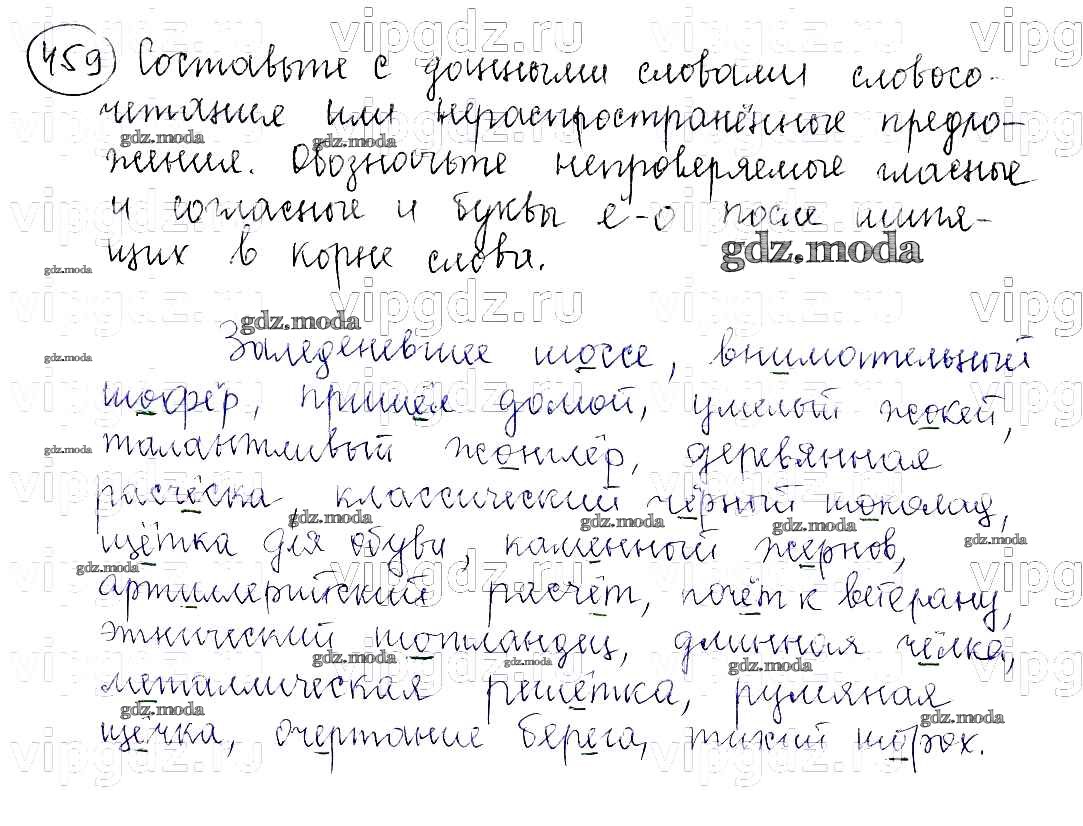 459 Составьте с данными словами словосо-
четания или нераспространённые предло-
жения. Обозначьте непроверяемые гласные
и согласные и буквы ё-о после шипя-
щих в корне слова.
Заледеневшее шоссе, внимательный
шофёр, пришёл домой, умелый жокей,
талантливый жонглёр, деревянная
расчёска, классический чёрный шоколад,
щётка для обуви, каменный жернов,
артиллерийский расчёт, почёт к ветерану,
этнический шотландец, длинная чёлка,
металлическая решётка, румяная
щёчка, очертание берега, тихий шорох.
vipgdz.ru
gdz.moda